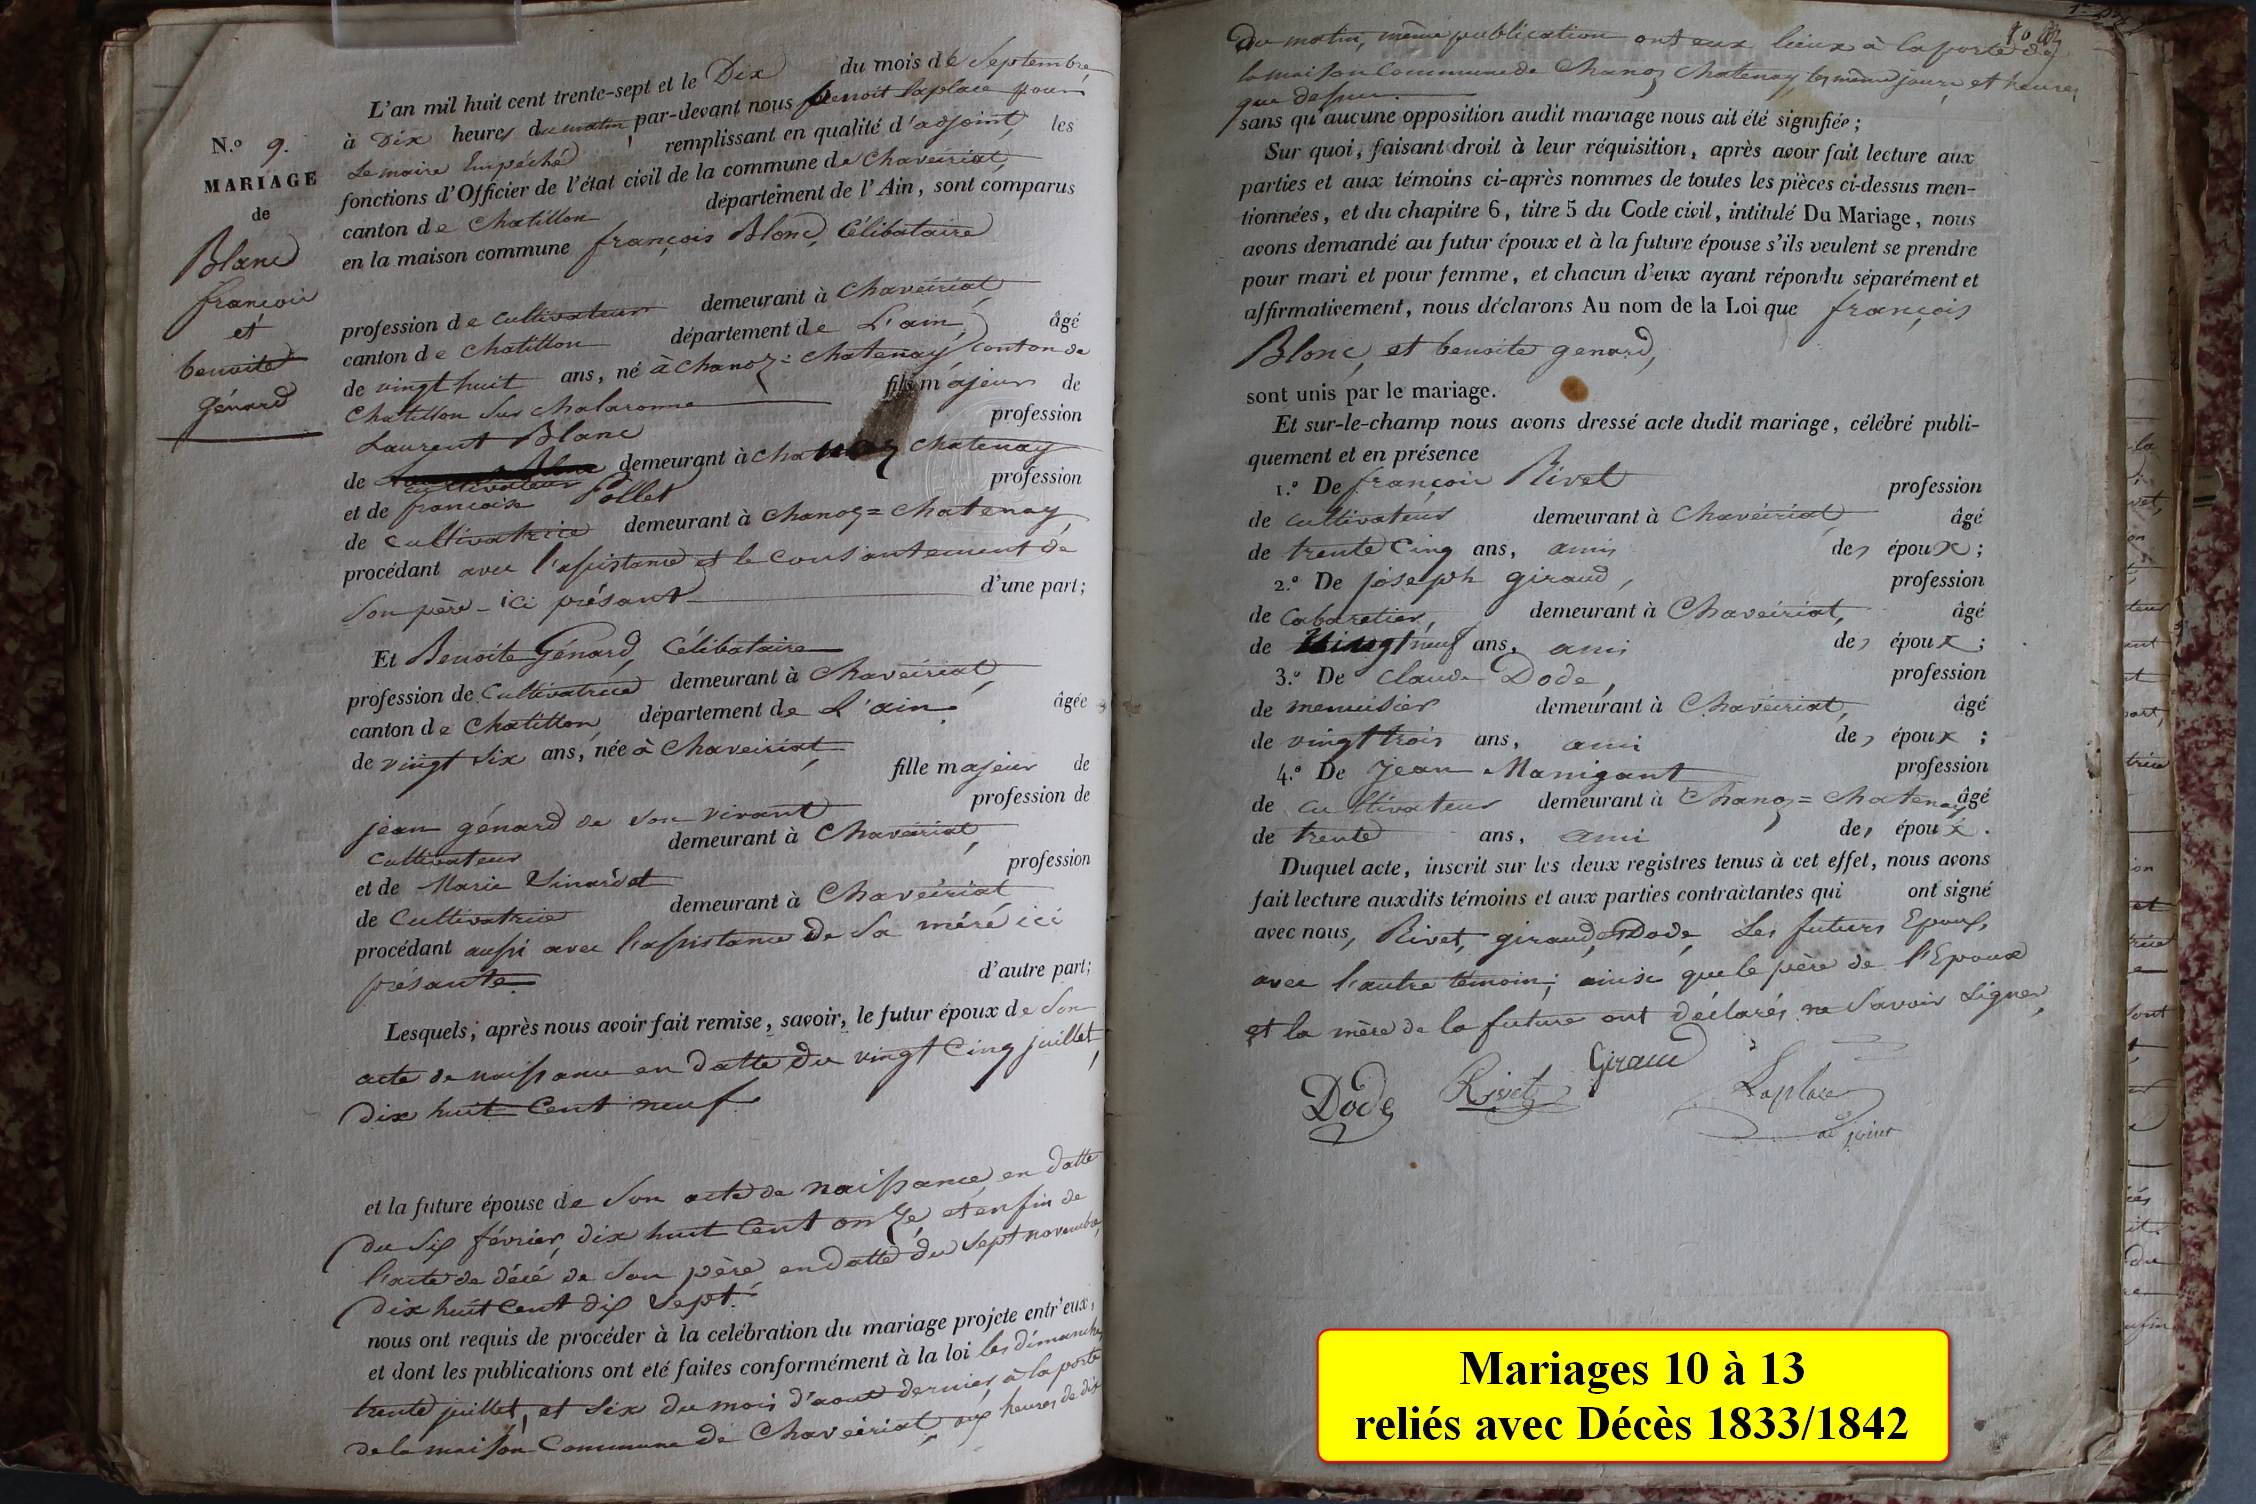 N.o 9.
MARIAGE
de
Blanc
françois
et
benoite
génard
L'an mil huit cent trente-sept et le Dix du mois de Septembre
à Dix heures du matin par-devant nous Benoit Laplace pour
Le maire Empéché remplissant en qualité d'adjoint, les
fonctions d'Officier de l'état civil de la commune de Chaveiriat,
canton de Chatillon département de l'Ain, sont comparus
en la maison commune françois Blanc, Célibataire
profession de cultivateur demeurant à Chaveiriat,
canton de Chatillon département de L'ain, âgé
de vingt huit ans, né à Chanoz=Chatenay canton de
Chatillon sur Chalaronne fils majeur de
Laurent Blanc profession
de cultivateur demeurant à Chanoz Chatenay
et de francoise Pollet profession
de Cultivatrice demeurant à Chanoz=Chatenay,
procédant avec l'assistance et le consantement de
Son père ici présant d'une part;
Et Benoite Génard, Célibataire
profession de Cultivatrice demeurant à Chaveiriat,
canton de Chatillon, département de L'ain, âgée
de vingt six ans, née à Chaveiriat,
fille majeur de
jean génard de son vivant profession de
Cultivateur demeurant à Chaveiriat,
et de Marie profession
de Cultivatrice demeurant à Chaveiriat
procédant aussi avec l'assistance de Sa méré ici
présante d'autre part;
Lesquels, après nous avoir fait remise, savoir, le futur époux de Son
acte de naissance en datte du vingt Cinq juillet,
dix huit Cent neuf
et la future épouse de Son acte de naissance, en datte
du Six février, dix huit Cent onze, et enfin de
l'acte de décé de Son père, en datte du Sept novembre,
dix huit Cent dix Sept.
nous ont requis de procéder à la celébration du mariage projete entr'eux,
et dont les publications ont eté faites conformément à la loi les dimanche,
trente juillet, et Six du mois d'aout dernier, à la porte
de la maison Commune de Chaveiriat, aux heures de dix
du matin, même publication ont eux lieux à la porte de
la maison Commune de Chanoz Chatenay, les même jours, et heures
que dessus.
sans qu'aucune opposition audit mariage nous ait été signifiée;
Sur quoi, faisant droit à leur réquisition, après avoir fait lecture aux
parties et aux témoins ci-après nommes de toutes les pièces ci-dessus men-
tionnées, et du chapitre 6, titre 5 du Code civil, intitulé Du Mariage, nous
avons demandé au futur époux et à la future épouse s'ils veulent se prendre
pour mari et pour femme, et chacun d'eux ayant répondu séparément et
affirmativement, nous déclarons Au nom de la Loi que françois
Blanc, et benoite genard,
sont unis par le mariage.
Et sur-le-champ nous avons dressé acte dudit mariage, célébré publi-
quement et en présence
1.o De françois Rivet profession
de cultivateur demeurant à Chaveiriat, âgé
de trente Cinq ans, amis des époux;
2.o De joseph giraud, profession
de Cabaretier, demeurant à Chaveiriat, âgé
de Vingt neuf ans, ami des époux;
3.o De claude Dode, profession
de menuisier demeurant à Chaveiriat, âgé
de vingt trois ans, ami des époux;
4.o De Jean Manigant profession
de cultivateur demeurant à Chanoz=Chatenay âgé
de trente ans, ami des époux.
Duquel acte, inscrit sur les deux registres tenus à cet effet, nous avons
fait lecture auxdits témoins et aux parties contractantes qui ont signé
avec nous, Rivet, giraud, et Dode, Les futurs Epoux,
avec l'autre témoin; ainsi que le père de l'Epoux
et la mère de la future ont déclarés ne Savoir Signer,
Dode Rivet Giraud Laplace
adjoint
Mariages 10 à 13
reliés avec Décès 1833/1842